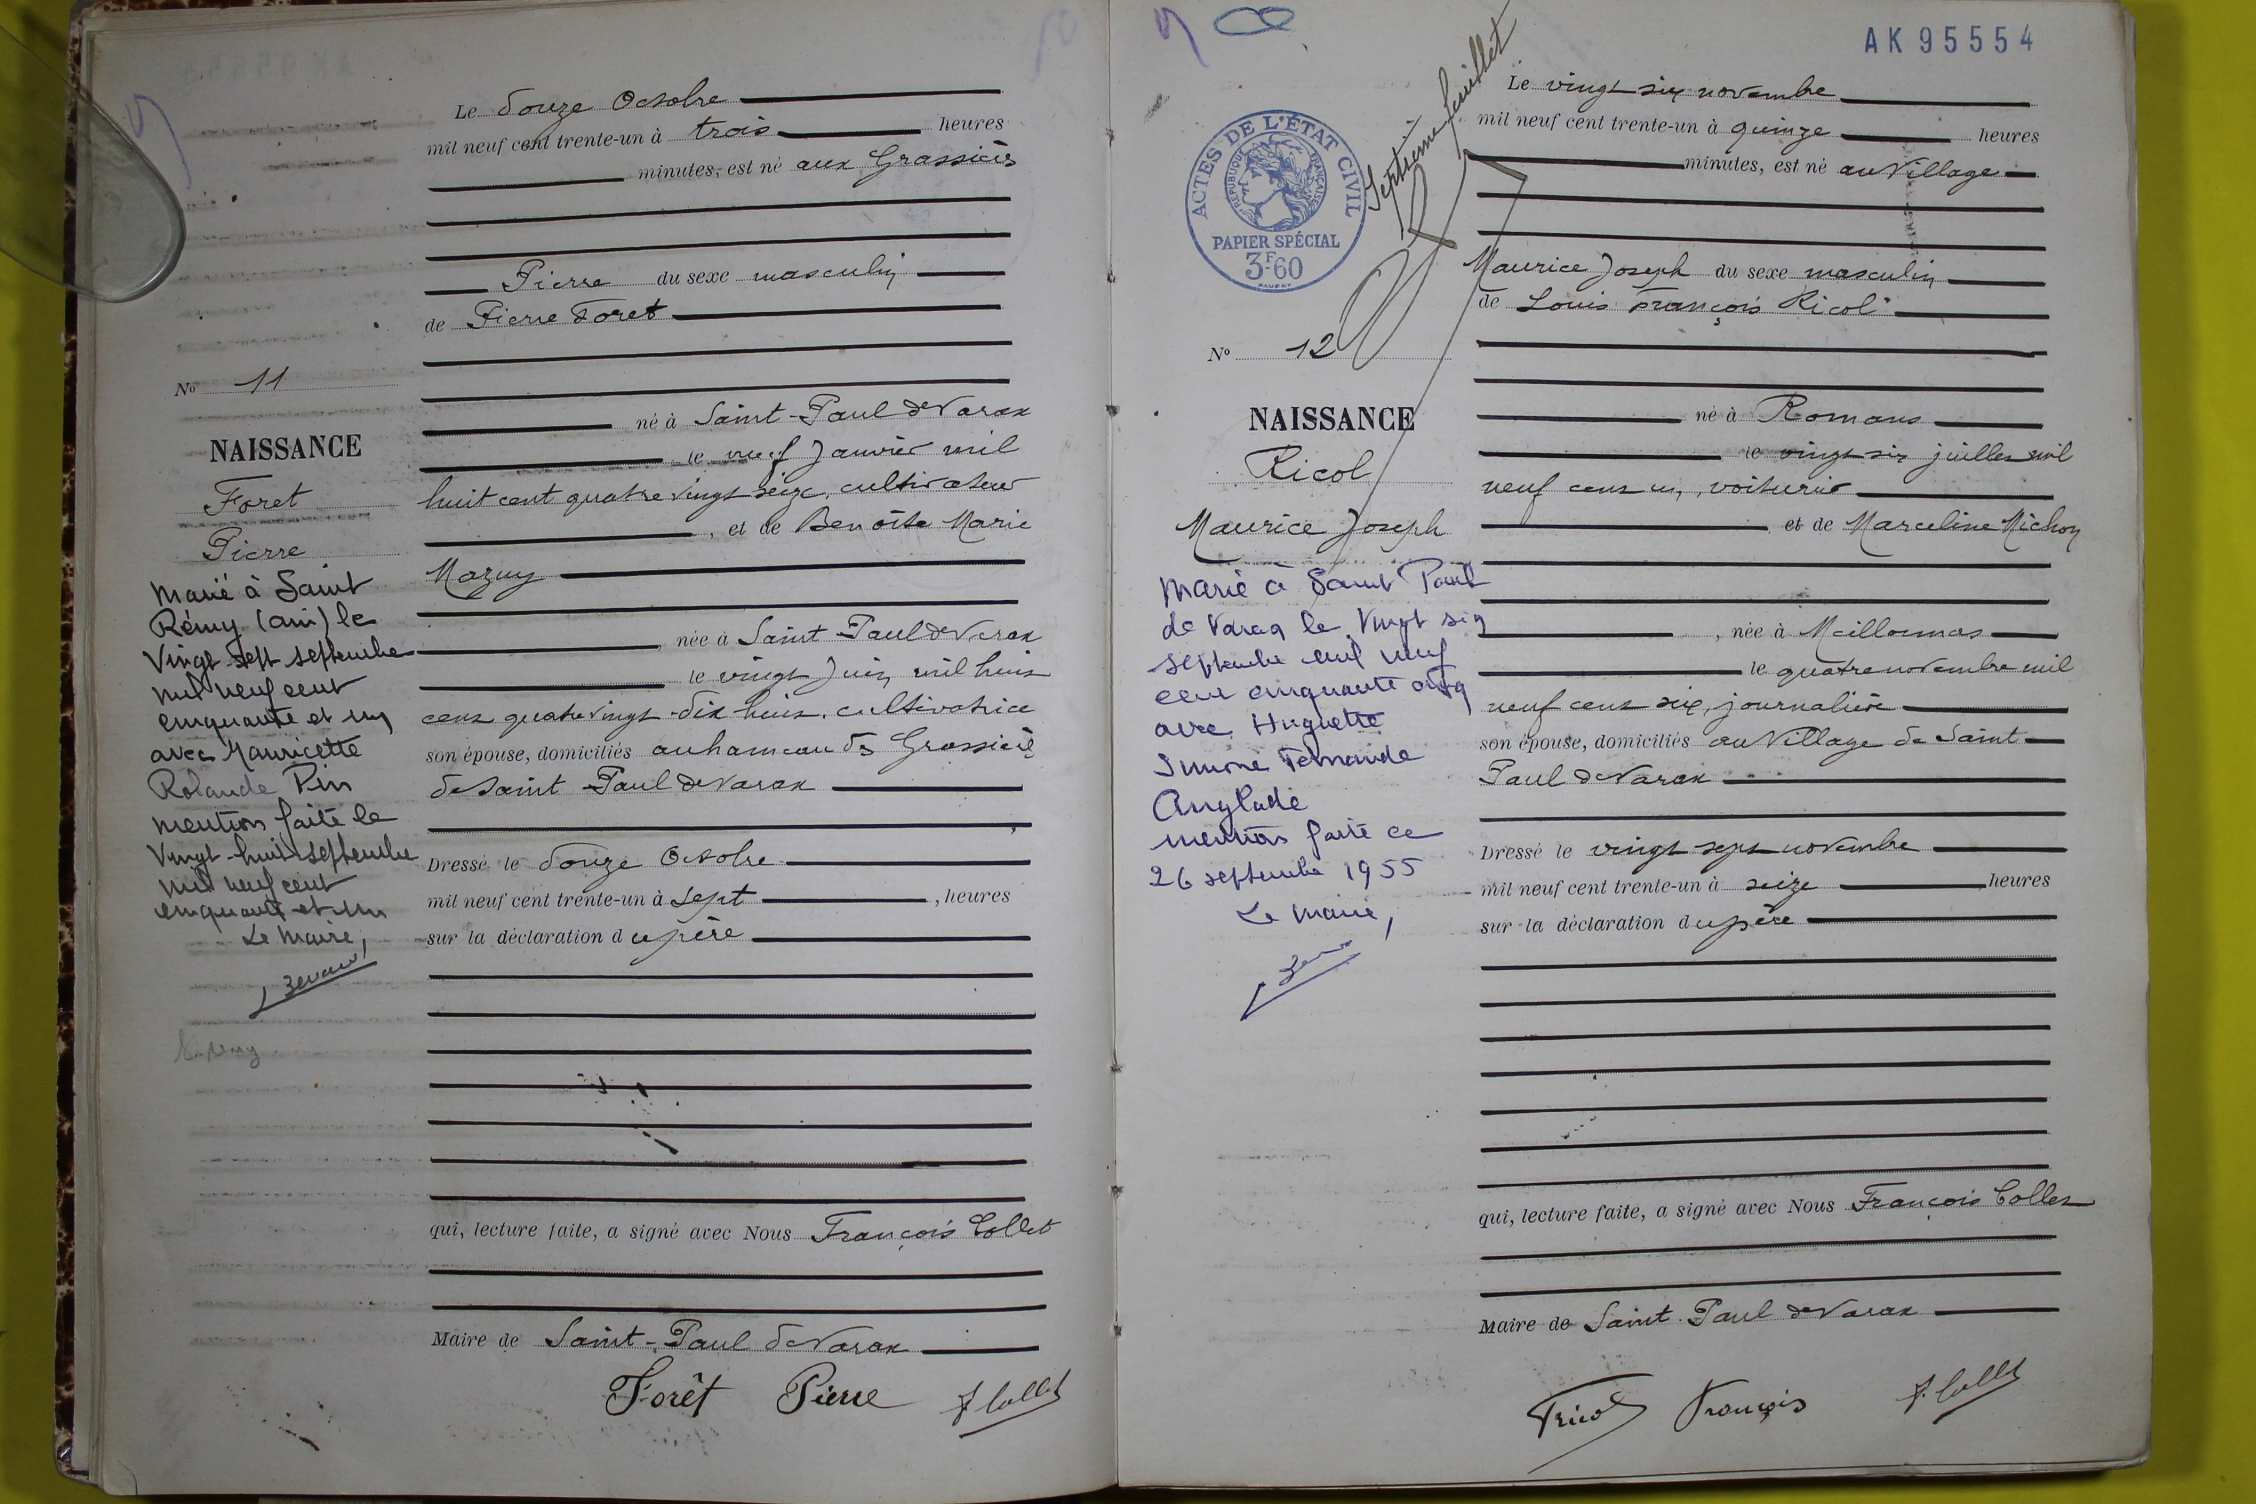 Le douze Octobre
mil neuf cent trente-un à trois heures
minutes, est né aux Grassières
Pierre du sexe masculin
de Pierre Foret
né à Saint-Paul de Varax
le neuf Janvier mil
huit cent quatre vingt seize, cultivateur
, et de Benoîte Marie
Mazuy
, née à Saint Paul de Varax
le vingt Juin mil huit
cent quatre vingt-dix huit, cultivatrice
son épouse, domiciliés au hameau des Grassières
de Saint Paul de Varax
Dressé le douze Octobre
mil neuf cent trente-un à sept , heures
sur la déclaration du père
qui, lecture faite, a signé avec Nous François Collet
Maire de Saint-Paul de Varax
Forêt Pierre F Collet
No 11
NAISSANCE
Foret
Pierre
Marié à Saint
Rémy (ain) le
Vingt-sept septembre
mil neuf cent
cinquante et un
avec Mauricette
Rolande Pin
mention faite le
Vingt-huit septembre
mil neuf cent
cinquante et un
Le Maire,
AK 95554
Septième feuillet
ACTES DE L'ÉTAT CIVIL
RÉPUBLIQUE FRANÇAISE
PAPIER SPÉCIAL
3F.60
No 12
NAISSANCE
Ricol
Maurice Joseph
Marié à Saint Paul
de Varax le Vingt six
septembre mil neuf
cent cinquante cinq
avec Huguette
Simone Fernande
Anglade
mention faite ce
26 septembre 1955
Le Maire,
Le vingt six novembre
mil neuf cent trente-un à quinze heures
minutes, est né au Village
Maurice Joseph du sexe masculin
de Louis François Ricol
né à Romans
le vingt six juillet mil
neuf cent un, voiturier
et de Marceline Michon
, née à Meillonnas
le quatre novembre mil
neuf cent six, journalière
son épouse, domiciliés au Village de Saint
Paul de Varax
Dressé le vingt sept novembre
mil neuf cent trente-un à seize heures
sur la déclaration du père
qui, lecture faite, a signé avec Nous François Collet
Maire de Saint Paul de Varax
François F. Collet